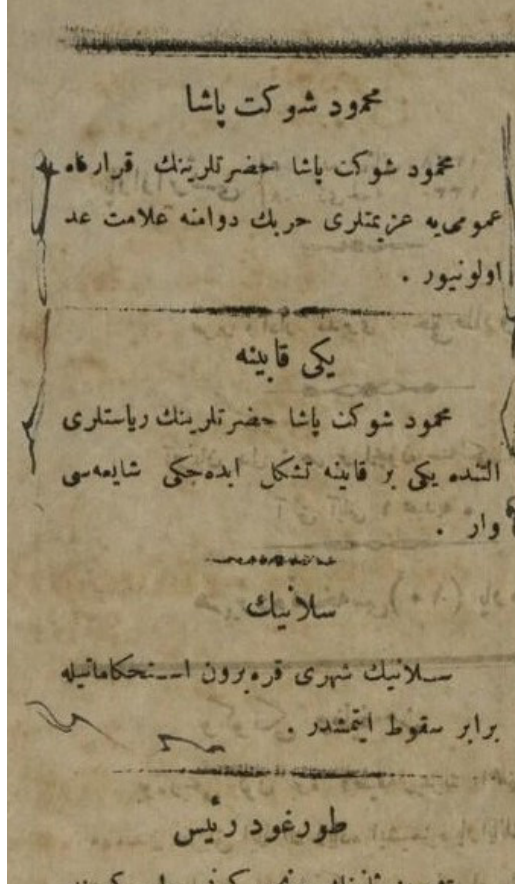 محمود شوكت پاشا
محمود شوكت پاشا حضرتلرينك قرارگاه
عمومی‌يه عزيمتلری حربك دوامنه علامت عد
اولونيور .
يكی قابينه
محمود شوكت پاشا حضرتلرينك رياستلری
التنده يكی بر قابينه تشكل ايده‌جكی شايعه‌سی
وار .
سلانيك
سلانيك شهری قره برون استحكاماتيله
برابر سقوط ايتمشدر .
طورغود رئيس